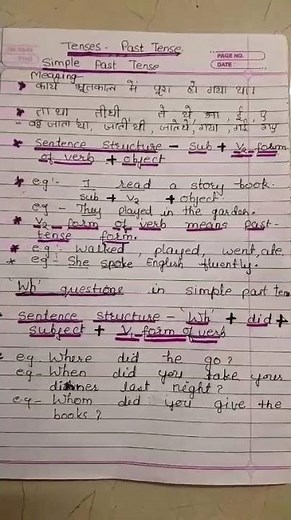 Tenses - Past Tense
PAGE NO.
DATE
Simple Past Tense
Meaning
कार्य भूतकाल में पूरा हो गया था।
ता था, ती थी, ते थे, आ, ई, ए
- वह जाता था, जाती थी, जाते थे, गया, गई, गए
* Sentence Structure - Sub + V2 form
of verb + object
* eg - I read a story book.
Sub + V2 + object
eg - They played in the garden.
* V2 form of verb means past-
tense form.
* eg - Walked, played, went, ate
* eg - She spoke English fluently.
'Wh' questions in simple past ten
* Sentence Structure - 'Wh' + did +
subject + V1 form of verb
eg - Where did he go?
eg - When did you take your
dinner last night?
eg - Whom did you give the
books?